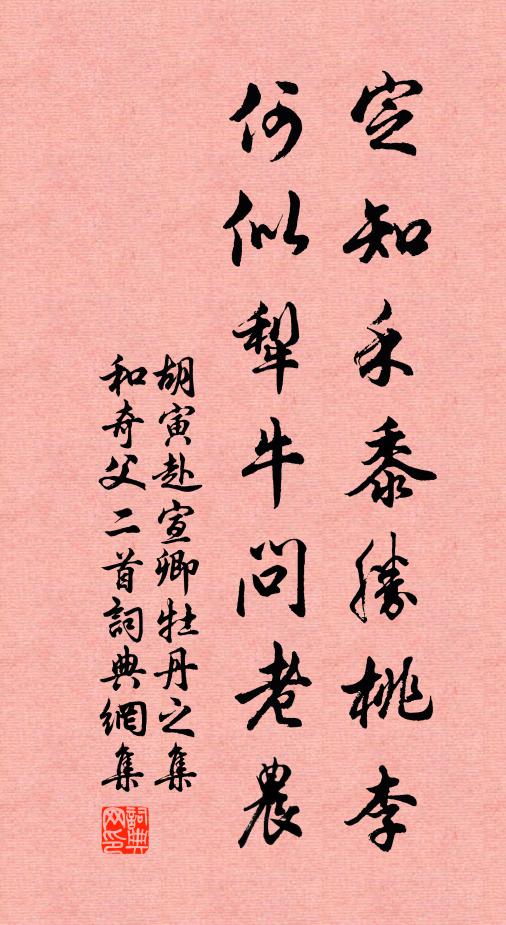 定知禾黍勝桃李
何似犁牛問老農
胡寅赴宣卿牡丹之集
和奇父二首詞典網集
詞典网印